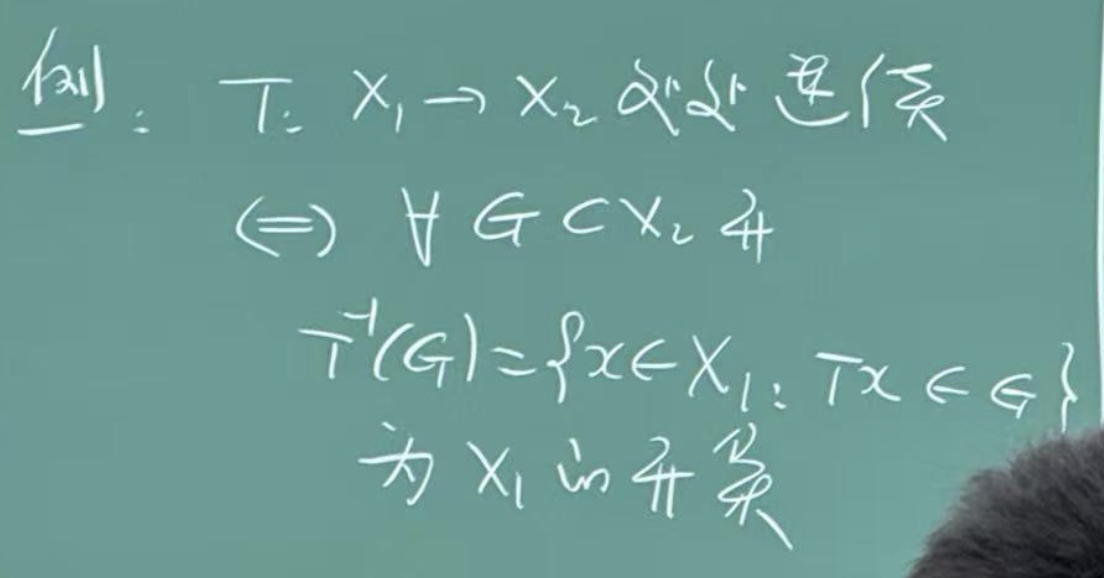 例: T: X₁→X₂ 处处连续
⇔ ∀ G⊂X₂ 开
T⁻¹(G)={x∈X₁: Tx∈G}
为 X₁ 的开集